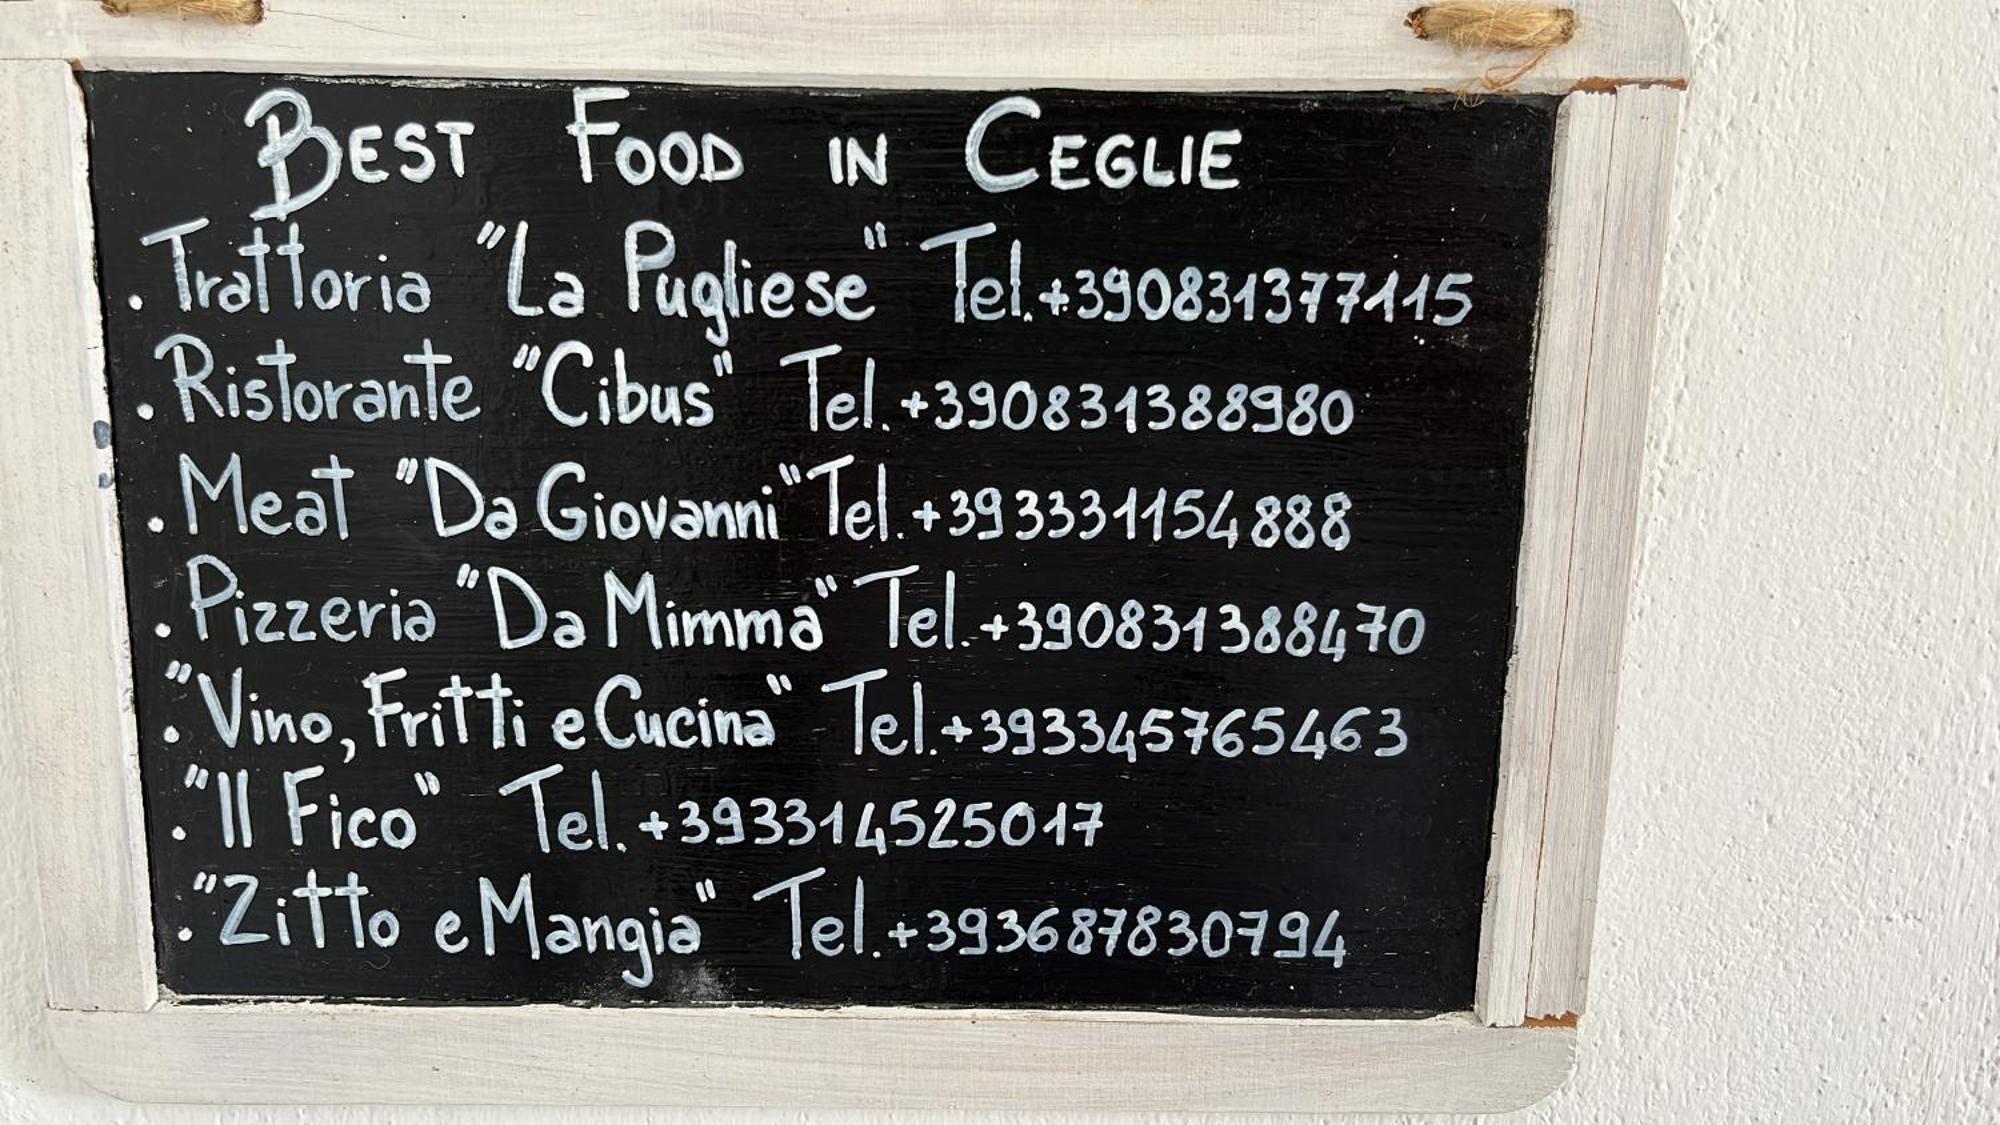 BEST FOOD IN CEGLIE
. Trattoria "La Pugliese" Tel.+390831377115
. Ristorante "Cibus" Tel.+390831388980
. Meat "Da Giovanni" Tel.+393331154888
. Pizzeria "Da Mimma" Tel.+390831388470
. "Vino, Fritti e Cucina" Tel.+393345765463
. "Il Fico" Tel.+393314525017
. "Zitto e Mangia" Tel.+393687830794